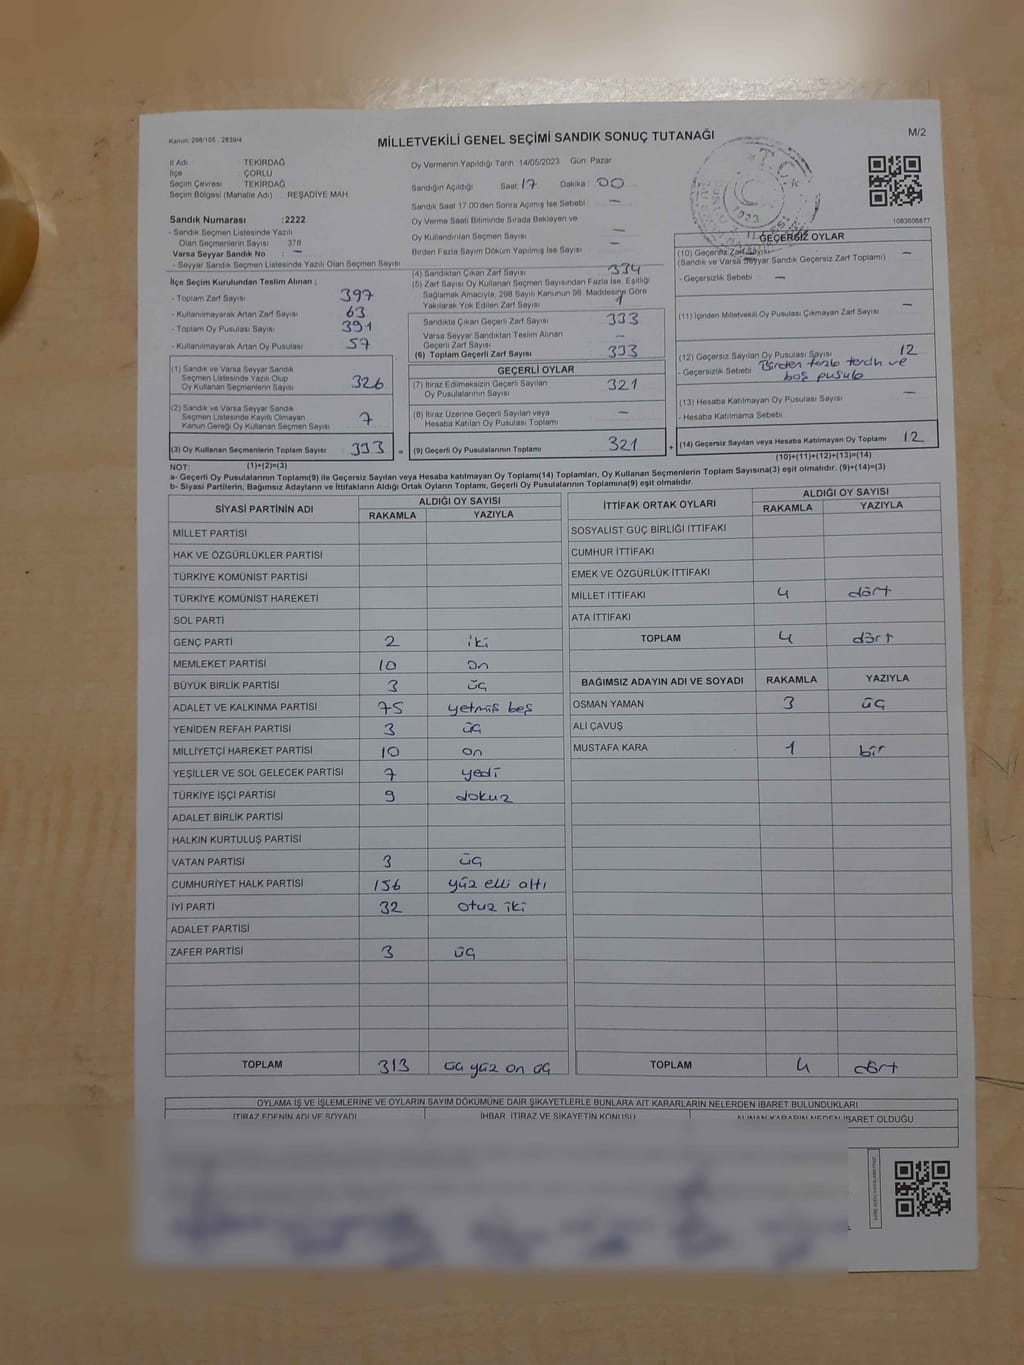 Kanun: 298/105 , 2839/4
MİLLETVEKİLİ GENEL SEÇİMİ SANDIK SONUÇ TUTANAĞI
M/2
İl Adı TEKİRDAĞ
İlçe ÇORLU
Seçim Çevresi TEKİRDAĞ
Seçim Bölgesi (Mahalle Adı) REŞADİYE MAH
Oy Vermenin Yapıldığı Tarih 14/05/2023 Gün Pazar
Sandığın Açıldığı Saat 17 Dakika 00
Sandık Saat 17.00'den Sonra Açılmış İse Sebebi —
Oy Verme Saati Bitiminde Sırada Bekleyen ve
Oy Kullandırılan Seçmen Sayısı —
Birden Fazla Sayım Döküm Yapılmış İse Sayısı —
T.C.
1923
1083606877
Sandık Numarası :2222
- Sandık Seçmen Listesinde Yazılı
Olan Seçmenlerin Sayısı 378
Varsa Seyyar Sandık No : —
- Seyyar Sandık Seçmen Listesinde Yazılı Olan Seçmen Sayısı
İlçe Seçim Kurulundan Teslim Alınan ;
- Toplam Zarf Sayısı 397
- Kullanılmayarak Artan Zarf Sayısı 63
- Toplam Oy Pusulası Sayısı 391
- Kullanılmayarak Artan Oy Pusulası 57
(1) Sandık ve Varsa Seyyar Sandık
Seçmen Listesinde Yazılı Olup
Oy Kullanan Seçmenlerin Sayısı 326
(2) Sandık ve Varsa Seyyar Sandık
Seçmen Listesinde Kayıtlı Olmayan
Kanun Gereği Oy Kullanan Seçmen Sayısı 7
(3) Oy Kullanan Seçmenlerin Toplam Sayısı 333 =
(1)+(2)=(3)
(4) Sandıktan Çıkan Zarf Sayısı 334
(5) Zarf Sayısı Oy Kullanan Seçmen Sayısından Fazla İse, Eşitliği
Sağlamak Amacıyla, 298 Sayılı Kanunun 98. Maddesine Göre
Yakılarak Yok Edilen Zarf Sayısı 1
Sandıkta Çıkan Geçerli Zarf Sayısı 333
Varsa Seyyar Sandıktan Teslim Alınan
Geçerli Zarf Sayısı —
(6) Toplam Geçerli Zarf Sayısı 333
GEÇERLİ OYLAR
(7) İtiraz Edilmeksizin Geçerli Sayılan
Oy Pusulalarının Sayısı 321
(8) İtiraz Üzerine Geçerli Sayılan veya
Hesaba Katılan Oy Pusulası Toplamı —
(9) Geçerli Oy Pusulalarının Toplamı 321 +
GEÇERSİZ OYLAR
(10) Geçersiz Zarf Sayısı
(Sandık ve Varsa Seyyar Sandık Geçersiz Zarf Toplamı) —
- Geçersizlik Sebebi : —
(11) İçinden Milletvekili Oy Pusulası Çıkmayan Zarf Sayısı —
(12) Geçersiz Sayılan Oy Pusulası Sayısı 12
- Geçersizlik Sebebi Birden fazla tercih ve
boş pusula
(13) Hesaba Katılmayan Oy Pusulası Sayısı —
- Hesaba Katılmama Sebebi
(14) Geçersiz Sayılan veya Hesaba Katılmayan Oy Toplamı 12
(10)+(11)+(12)+(13)=(14)
NOT:
a- Geçerli Oy Pusulalarının Toplamı(9) ile Geçersiz Sayılan veya Hesaba katılmayan Oy Toplamı(14) Toplamları, Oy Kullanan Seçmenlerin Toplam Sayısına(3) eşit olmalıdır. (9)+(14)=(3)
b- Siyasi Partilerin, Bağımsız Adayların ve İttifakların Aldığı Ortak Oyların Toplamı, Geçerli Oy Pusulalarının Toplamına(9) eşit olmalıdır.
SİYASİ PARTİNİN ADI ALDIĞI OY SAYISI
RAKAMLA YAZIYLA
MİLLET PARTİSİ
HAK VE ÖZGÜRLÜKLER PARTİSİ
TÜRKİYE KOMÜNİST PARTİSİ
TÜRKİYE KOMÜNİST HAREKETİ
SOL PARTİ
GENÇ PARTİ 2 iki
MEMLEKET PARTİSİ 10 on
BÜYÜK BİRLİK PARTİSİ 3 üç
ADALET VE KALKINMA PARTİSİ 75 yetmiş beş
YENİDEN REFAH PARTİSİ 3 üç
MİLLİYETÇİ HAREKET PARTİSİ 10 on
YEŞİLLER VE SOL GELECEK PARTİSİ 7 yedi
TÜRKİYE İŞÇİ PARTİSİ 9 dokuz
ADALET BİRLİK PARTİSİ
HALKIN KURTULUŞ PARTİSİ
VATAN PARTİSİ 3 üç
CUMHURİYET HALK PARTİSİ 156 yüz elli altı
İYİ PARTİ 32 otuz iki
ADALET PARTİSİ
ZAFER PARTİSİ 3 üç
TOPLAM 313 üç yüz on üç
İTTİFAK ORTAK OYLARI ALDIĞI OY SAYISI
RAKAMLA YAZIYLA
SOSYALİST GÜÇ BİRLİĞİ İTTİFAKI
CUMHUR İTTİFAKI
EMEK VE ÖZGÜRLÜK İTTİFAKI
MİLLET İTTİFAKI 4 dört
ATA İTTİFAKI
TOPLAM 4 dört
BAĞIMSIZ ADAYIN ADI VE SOYADI RAKAMLA YAZIYLA
OSMAN YAMAN 3 üç
ALİ ÇAVUŞ
MUSTAFA KARA 1 bir
TOPLAM 4 dört
OYLAMA İŞ VE İŞLEMLERİNE VE OYLARIN SAYIM DÖKÜMÜNE DAİR ŞİKAYETLERLE BUNLARA AİT KARARLARIN NELERDEN İBARET BULUNDUKLARI
İTİRAZ EDENİN ADI VE SOYADI İHBAR, İTİRAZ VE ŞİKAYETİN KONUSU ALINAN KARARIN NEDEN İBARET OLDUĞU